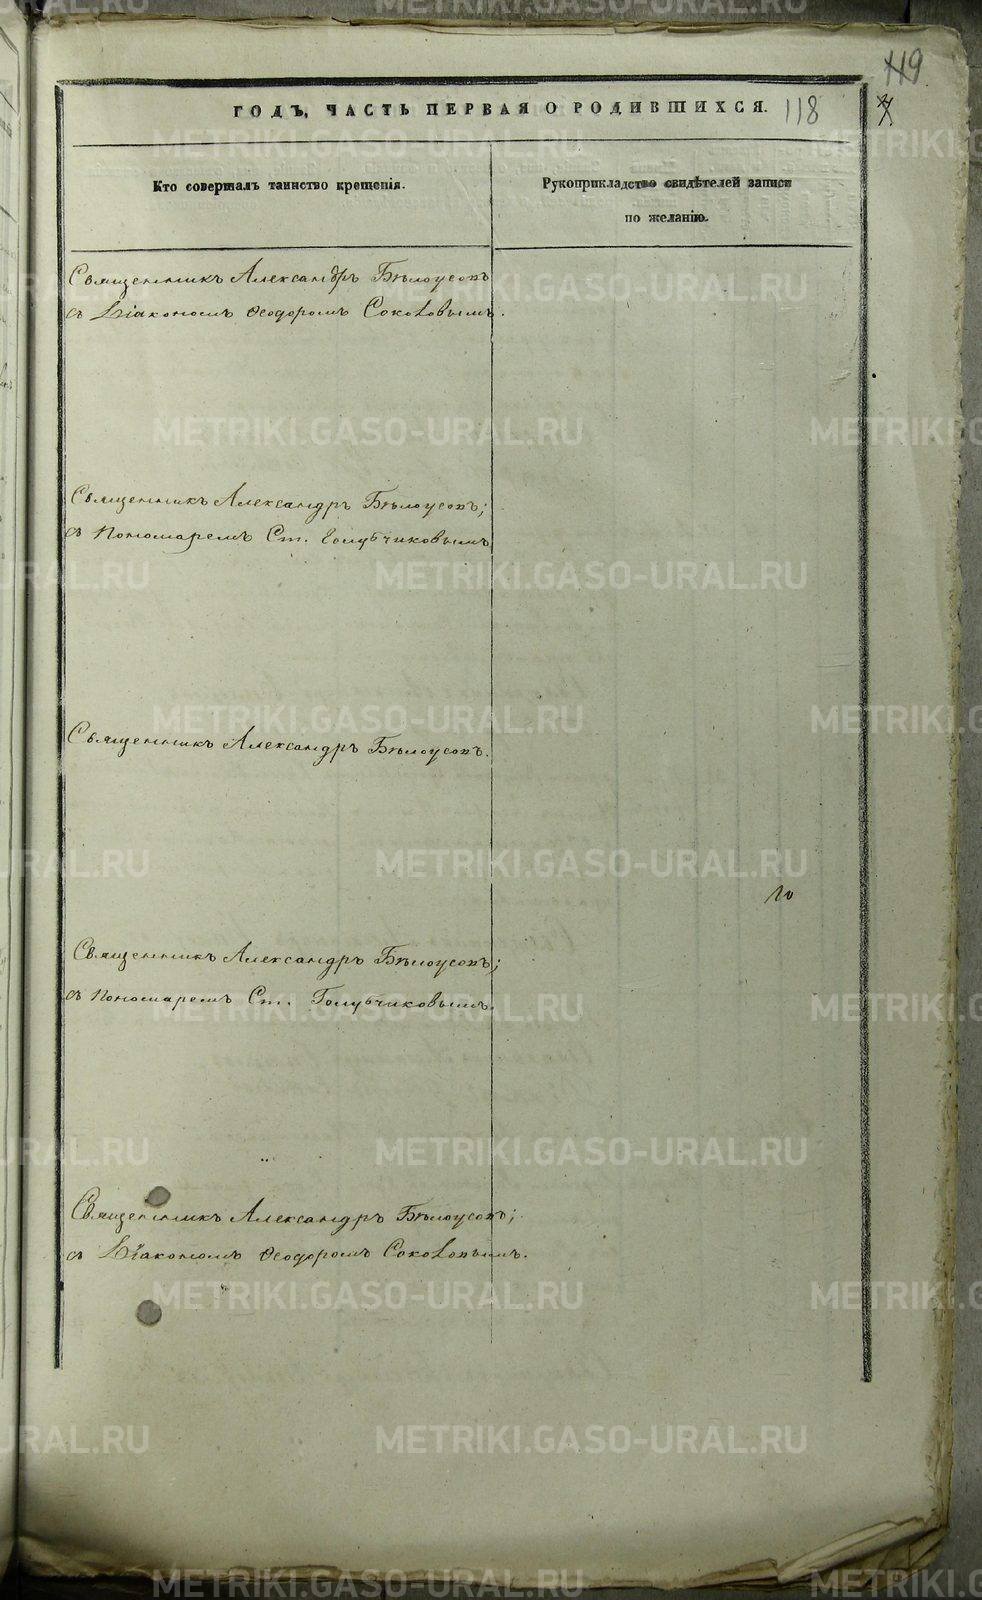 119
ГОДЪ, ЧАСТЬ ПЕРВАЯ О РОДИВШИХСЯ. 118
Кто совершалъ таинство крещенія.
Рукоприкладство свидѣтелей записи
по желанію.
Священникъ Александръ Бѣлоусовъ
съ Діакономъ Ѳеодоромъ Соколовымъ.
Священникъ Александръ Бѣлоусовъ;
съ Пономаремъ Ст. Голубчиковымъ
Священникъ Александръ Бѣлоусовъ.
Священникъ Александръ Бѣлоусовъ;
съ Пономаремъ Ст. Голубчиковымъ.
Священникъ Александръ Бѣлоусовъ;
съ Діакономъ Ѳеодоромъ Соколовымъ.
METRIKI.GASO-URAL.RU